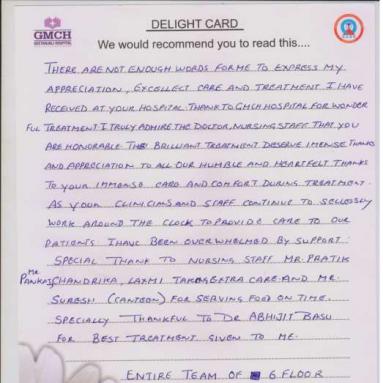 GMCH
GEETANJALI HOSPITAL
DELIGHT CARD
We would recommend you to read this....
THERE ARE NOT ENOUGH WORDS FOR ME TO EXPRESS MY
APPRECIATION, EXCELLECT CARE AND TREATMENT I HAVE
RECEIVED AT YOUR HOSPITAL. THANK TO GMCH HOSPITAL FOR WONDER
FUL TREATMENT I TRULY ADMIRE THE DOCTOR, NURSING STAFF THAT YOU
ARE HONORABLE THE BRILLIANT TREATMENT DESERVE IMENSE THANKS
AND APPRECIATION TO ALL OUR HUMBLE AND HEARTFELT THANKS
TO YOUR IMMENSE CARD AND COMFORT DURING TREATMENT.
AS YOUR CLINICIANS AND STAFF CONTINUE TO SELLESSLY
WORK AROUND THE CLOCK TO PROVIDE CARE TO OUR
PATIENTS I HAVE BEEN OVERWHELMED BY SUPPORT.
SPECIAL THANK TO NURSING STAFF MR. PRATIK
Mr. PANKAJ, CHANDRIKA, LAXMI TAKING EXTRA CARE AND MR.
SURESH (CANTEEN) FOR SERVING FOOD ON TIME.
SPECIALLY THANKFUL TO DR ABHIJIT BASU
FOR BEST TREATMENT GIVEN TO ME.
ENTIRE TEAM OF 6 FLOOR